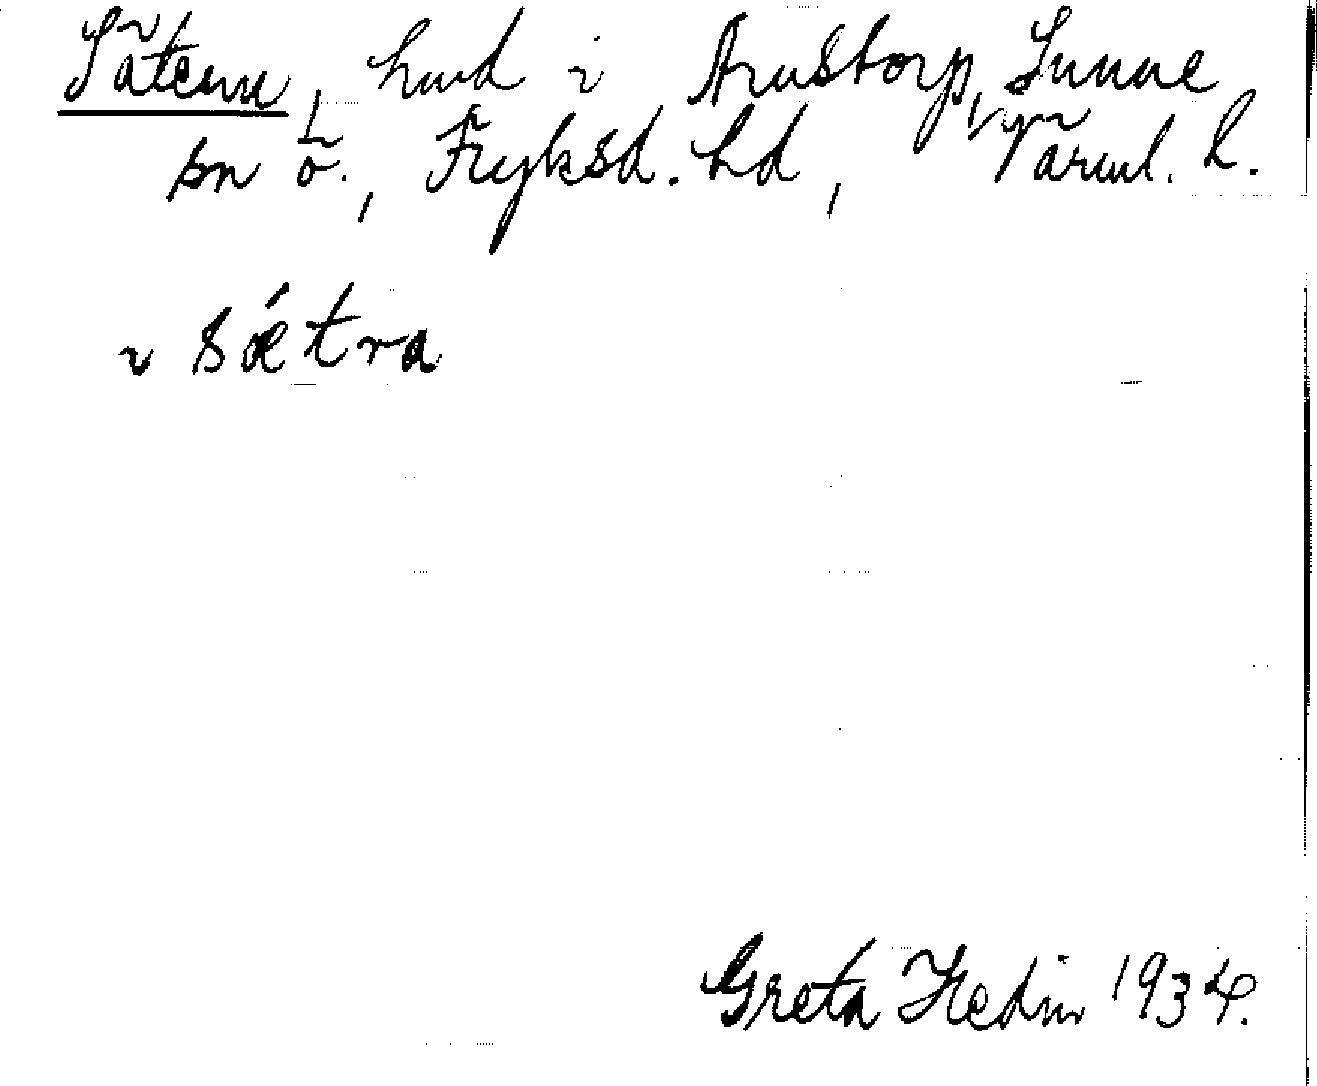 Sätern, hmd i Arnstorp, Sunne
sn ö., Fryksd. hd, Värml. l.
i sǽtra
Greta Hedin 1934.